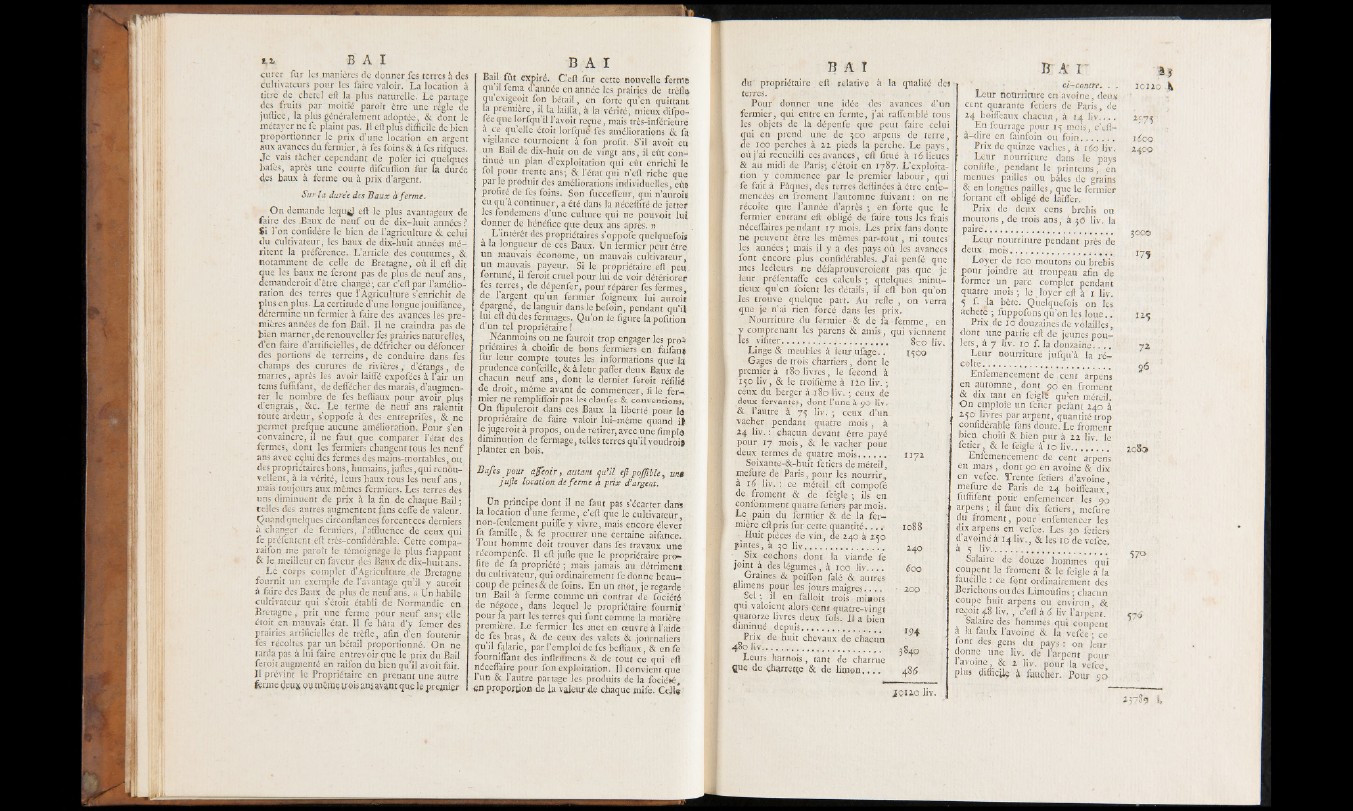 22 B A I
curer sur les manières de donner ses terres à des
cultivateurs pour les faire valoir. La location à
titre de cheptel est la plus naturelle. Le partage
des fruits par moitié paroît être une règle de
justice, la plus généralement adoptée, & dont le
métayer ne se plaint pas. Il est plus difficile de bien
proportionner le prix d'une location en argent
aux avances du fermier, à ses soins & à ses risques.
Je vais tâcher cependant de poser ici quelques
bases, après une courte discussion sur la durée
des baux à ferme ou à prix d'argent.
Sur la durée des Baux à ferme.
On demande lequel est le plus avantageux de
faire des Baux de neuf ou de dix-huit années?
Si l'on considère le bien de l'agriculture & celui
du cultivateur, les baux de dix-huit années mé-
ritent la préférence. L'article des coutumes, &
notamment de celle de Bretagne, où il est dit
que les baux ne seront pas de plus de neuf ans,
demanderoit d'être changé; car c'est par l'amélio-
ration des terres que l'Agriculture s'enrichit de
plus en plus. La certitude d'une longue jouissance,
détermine un fermier à faire des avances les pre-
mières années de son Bail. Il ne craindra pas de
bien marner, de renouveller ses prairies naturelles,
d'en faire d'artificielles, de défricher ou défoncer
des portions de terreins, de conduire dans ses
champs des curures de rivières, d'étangs, de
marres, après les avoir laissé exposées à l'air un
tems suffisant, de dessécher des marais, d'augmen-
ter le nombre de ses bestiaux pour avoir plus
d'engrais, &c. Le terme de neuf ans ralentit
toute ardeur, s'oppose à des entreprises, & ne
permet presque aucune amélioration. Pour s'en
convaincre, il ne faut que comparer l'état des
fermes, dont les fermiers changent tous les neuf
ans avec celui des fermes des mains-mortables, ou
des propriétaires bons, humains, justes, qui renou-
vellent, à la vérité, leurs baux tous les neuf ans,
mais toujours aux mêmes fermiers. Les terres des
uns diminuent de prix à la fin de chaque Bail;
telles des autres augmentent sans cesse de valeur.
Quand quelques circonstances forcent ces derniers
à changer de fermiers, l'affluence de ceux qui
se présentent est très-considérable. Cette compa-
raison me paroît le témoignage le plus frappant
& le meilleur en faveur des Baux de dix-huit ans.
Le corps complet d'Agriculture de Bretagne
fournit un exemple de l'avantage qu'il y auroit
à faire des Baux de plus de neuf ans. » Un habile
cultivateur qui s'étoit établi de Normandie en
Bretagne, prit une ferme pour neuf ans; elle
étoit en mauvais état. Il se hâta d'y semer des
prairies artificielles de trèfle, afin d'en soutenir
ses récoltes par un bétail proportionné. On ne
tarda pas à lui faire entrevoir que le prix du Bail
seroit augmenté en raison du bien qu'il avoit fait.
Il prévint le Propriétaire en prenant une autre
ferme deux ou même trois ans avant que le premier
B A I
Bail fût expiré. C'est sur cette nouvelle ferme
qu'il sema d'année en année les prairies de trèfle
qu'exigeoit son bétail, en sorte qu'en quittant
la première, il la laissa, à la vérité, mieux dispo-
sée que lorsqu'il l'avoit reçue, mais très-inférieure
à ce qu'elle étoit lorsque ses améliorations & sa
vigilance tournoient à son profit. S'il avoit eu
un Bail de dix-huit ou de vingt ans, il eût con-
tinué un plan d'exploitation qui eût enrichi le
sol pour trente ans; & l'état qui n'est riche que
par le produit des améliorations individuelles, eût
profité de ses soins. Son successeur, qui n'auroit
eu qu'à continuer, a été dans la nécessité de jetter
les fondemens d'une culture qui ne pouvoit lui
donner de bénéfice que deux ans après. »
L'intérêt des propriétaires s'oppose quelquefois
à la longueur de ces Baux. Un fermier peut être
un mauvais économe, un mauvais cultivateur,
un mauvais payeur. Si le propriétaire est peu
fortuné, il seroit cruel pour lui de voir détériorer
ses terres, de dépenser, pour réparer ses fermes,
de l'argent qu'un fermier soigneux lui auroit
épargné, de languir dans le besoin, pendant qu'il
lui est dû des fermages. Qu'on se figure la position
d'un tel propriétaire!
Néanmoins on ne sauroit trop engager les pro-
priétaires à choisir de bons fermiers en faisant
sur leur compte toutes les informations que la
prudence conseille, & à leur passer deux Baux de
chacun neuf ans, dont le dernier seroit résilié
de droit, même avant de commencer, si le fer-
mier ne remplissoit pas les clauses & conventions.
On stipuleroit dans ces Baux la liberté pour le
propriétaire de faire valoir lui-même quand il
le jugeroit à propos, ou de retirer, avec une simple
diminution de fermage, telles terres qu'il voudroit
planter en bois.
Bases pour asseoir, autant qu'il est possible, une
juste location de ferme à prix d'argent.
Un principe dont il ne faut pas s'écarter dans
la location d'une ferme, c'est que le cultivateur,
non-seulement puisse y vivre, mais encore élever
sa famille, & se procurer une certaine aisance.
Tout homme doit trouver dans ses travaux une
récompense. Il est juste que le propriétaire pro-
fite de sa propriété; mais jamais au détriment
du cultivateur, qui ordinairement se donne beau-
coup de peines & de soins. En un mot, je regarde
un Bail à ferme comme un contrat de société
de négoce, dans lequel le propriétaire fournit
pour sa part les terres qui sont comme la matière
première. Le fermier les met en œuvre à l'aide
de ses bras, & de ceux des valets & journaliers
qu'il salarie, par l'emploi de ses bestiaux, & en se
fournissant des instrumens & de tout ce qui est
nécessaire pour son exploitation. Il convient que
l'un & l'autre partage les produits de la société,
en proportion de la valeur de chaque mise. Celle
B A I
du propriétaire est relative à la qualité des
terres.
Pour donner une idée des avances d'un
fermier, qui entre en ferme, j'ai rassemblé tous
les objets de la dépense que peut faire celui
qui en prend une de 300 arpens de terre,
de 100 perches à 22 pieds la perche. Le pays,
où j'ai recueilli ces avances, est situé à 16 lieues
& au midi de Paris; c'étoit en 1787. L'exploita-
tion y commence par le premier labour, qui
se fait à Pâques, des terres destinées à être ense-
mencées en froment l'automne suivant: on ne
récolte que l'année d'après; en sorte que le
fermier entrant est obligé de faire tous les frais
nécessaires pendant 17 mois. Les prix sans doute
ne peuvent être les mêmes par-tout, ni toutes
les années; mais il y a des pays où les avances
sont encore plus considérables. J'ai pensé que
mes lecteurs ne désaprouveroient pas que je
leur présentasse ces calculs; quelques minu-
tieux qu'en soient les détails, il est bon qu'on
les trouve quelque part. Au reste, on verra
que je n'ai rien forcé dans les prix.
Nourriture du fermier & de sa femme, en
y comprenant les parens & amis, qui viennent
les visiter.................... 800 liv.
Linge & meubles à leur usage.. 1500
Gages de trois charriers, dont le
premier à 180 livres, le second à
150 liv, & le troisième à 120 liv.;
ceux du berger à 180 liv.; ceux de
deux servantes, dont l'une à 90 liv.
& l'autre à 75 liv.; ceux d'un
vacher pendant quatre mois, à
24 liv.: chacun devant être payé
pour 17 mois, & le vacher pour
deux termes de quatre mois...... 1172
Soixante-&-huit setiers de méteil,
mesure de Paris, pour les nourrir,
à 16 liv.: ce méteil est composé
de froment & de seigle; ils en
consomment quatre setiers par mois.
Le pain du fermier & de la fer-
mière est pris sur cette quantité.... 1088
Huit pièces de vin, de 240 à 250
pintes, à 30 liv................ 240
Six cochons dont la viande se
joint à des légumes, à 100 liv.... 600
Graines & poisson salé & autres
alimens pour les jours maigres.... 200
Sel: il en falloit trois minots
qui valoient alors cent quatre-vingt
quatorze livres deux sols. Il a bien
diminué depuis................ 194
Prix de huit chevaux de chacun
480 liv...................... 3840
Leurs harnois, tant de charrue
que de charrette & de limon.... 486
10120 liv.
B A I 23
ci-contre. . . 10120 l.
Leur nourriture en avoine, deux
cent quarante setiers de Paris, de
24 boisseaux chacun, à 14 liv.... 2575
En fourrage pour 15 mois, c'est-
à-dire en sainfoin ou foin....... 1600
Prix de quinze vaches, à 160 liv. 2400
Leur nourriture dans le pays
consiste, pendant le printems, en
menues pailles ou bâles de grains
& en longues pailles, que le fermier
sortant est obligé de laisser.
Prix de deux cens brebis ou
moutons, de trois ans, à 30 liv. la
paire........................ 3000
Leur nourriture pendant près de
deux mois.................... 175
Loyer de 100 moutons ou brebis
pour joindre au troupeau afin de
former un parc complet pendant
quatre mois; le loyer est à 1 liv.
5 s. la bête. Quelquefois on les
achete; supposons qu'on les loue.. 125
Prix de 10 douzaines de volailles,
dont une partie est de jeunes pou-
lets, à 7 liv. 10 s. la douzaine.... 72
Leur nourriture jusqu'à la ré-
colte........................ 96
Ensemencement de cent arpens
en automne, dont 90 en froment
& dix tant en seigle qu'en méteil.
On emploie un setier pesant 240 à
250 livres par arpent, quantité trop
considérable sans doute. Le froment
bien choisi & bien pur à 22 liv. le
setier, & le seigle à 10 liv......... 2080
Ensemencement de cent arpens
en mars, dont 90 en avoine & dix
en vesce. Trente setiers d'avoine,
mesure de Paris de 24 boisseaux,
suffisent pour ensemencer les 90
arpens; il faut dix setiers, mesure
du froment, pour ensemencer les
dix arpens en vesce. Les 30 setiers
d'avoine à 14 liv., & les 10 de vesce,
à 5 liv...................... 570
Salaire de douze hommes qui
coupent le froment & le seigle à la
faucille: ce sont ordinairement des
Berichons ou des Limousins; chacun
coupe huit arpens ou environ, &
reçoit 48 liv., c'est à 6 liv l'arpent. 576
Salaire des hommes qui coupent
à la faulx l'avoine & la vesce; ce
sont des gens du pays: on leur
donne une liv. de l'arpent pour
l'avoine, & 2 liv. pour la vesce,
plus difficile à faucher. Pour 90
23789 l.